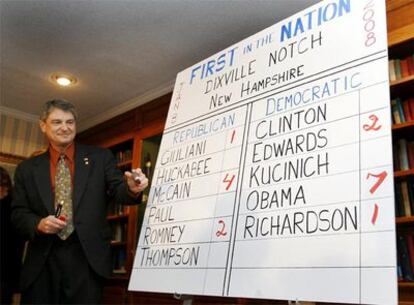 FIRST IN THE NATION
DIXVILLE NOTCH
NEW HAMPSHIRE
JAN 8
2008
REPUBLICAN
GIULIANI 1
HUCKABEE
McCAIN 4
PAUL
ROMNEY 2
THOMPSON
DEMOCRATIC
CLINTON
EDWARDS 2
KUCINICH
OBAMA 7
RICHARDSON 1